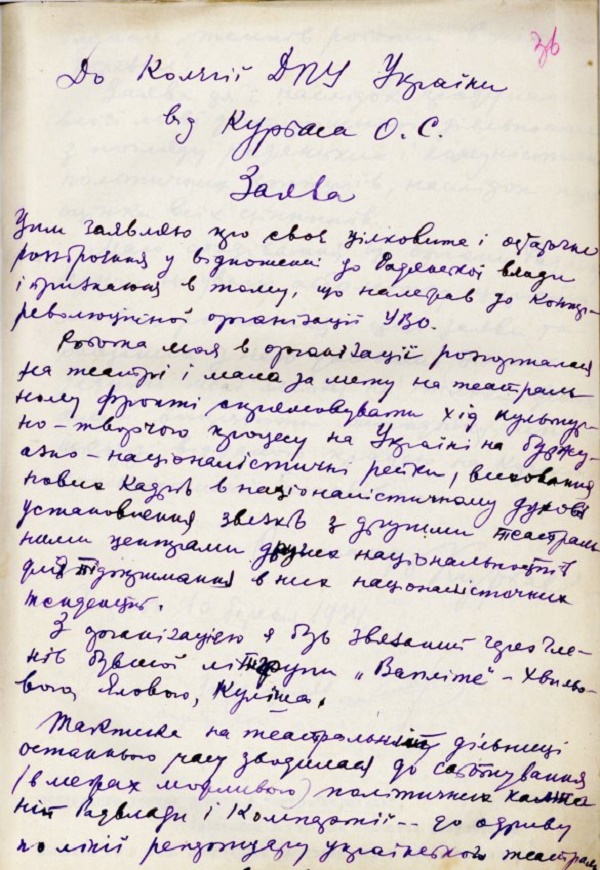 36
До Колегії ДПУ України
від Курбаса О.С.
Заява
Цим заявляю про своє цілковите і остаточне
роззброєння у відношенні до Радянської влади
і признання в тому, що належав до контр-
революційної організації УВО.
Робота моя в організації розгорталася
на театрі і мала за мету на театраль-
ному фронті спрямовувати хід культур-
но-творчого процесу на Україні на буржу-
азно-націоналістичні рейки, виховання
нових кадрів в націоналістичному дусі
установлення звязків з другими театраль-
ними центрами других національностів
для підтримання в них націоналістичних
тенденцій.
З організацією я був звязаний через чле-
нів бувшої літгрупи „Вапліте" – Хвильо-
вого, Ялового, Куліша.
Тактика на театральній дільниці
останнього часу зводилася до саботування
(в межах можливого) політичних кампа-
ній Радвлади і Компартії -- до одриву
по лінії репертуару українського театру